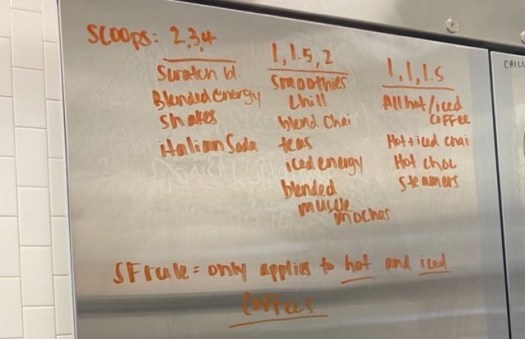 Scoops: 2,3,4
Scratch bl.
Blended energy
shakes
italian Soda
1, 1.5, 2
Smoothies
Chill
blend chai
teas
iced energy
blended
muscle
mochas
1, 1, 1.5
All hot/iced
COFFEE
Hot+iced chai
Hot choc
Steamers
SF rule = only applies to hot and iced
coffees
CHILL